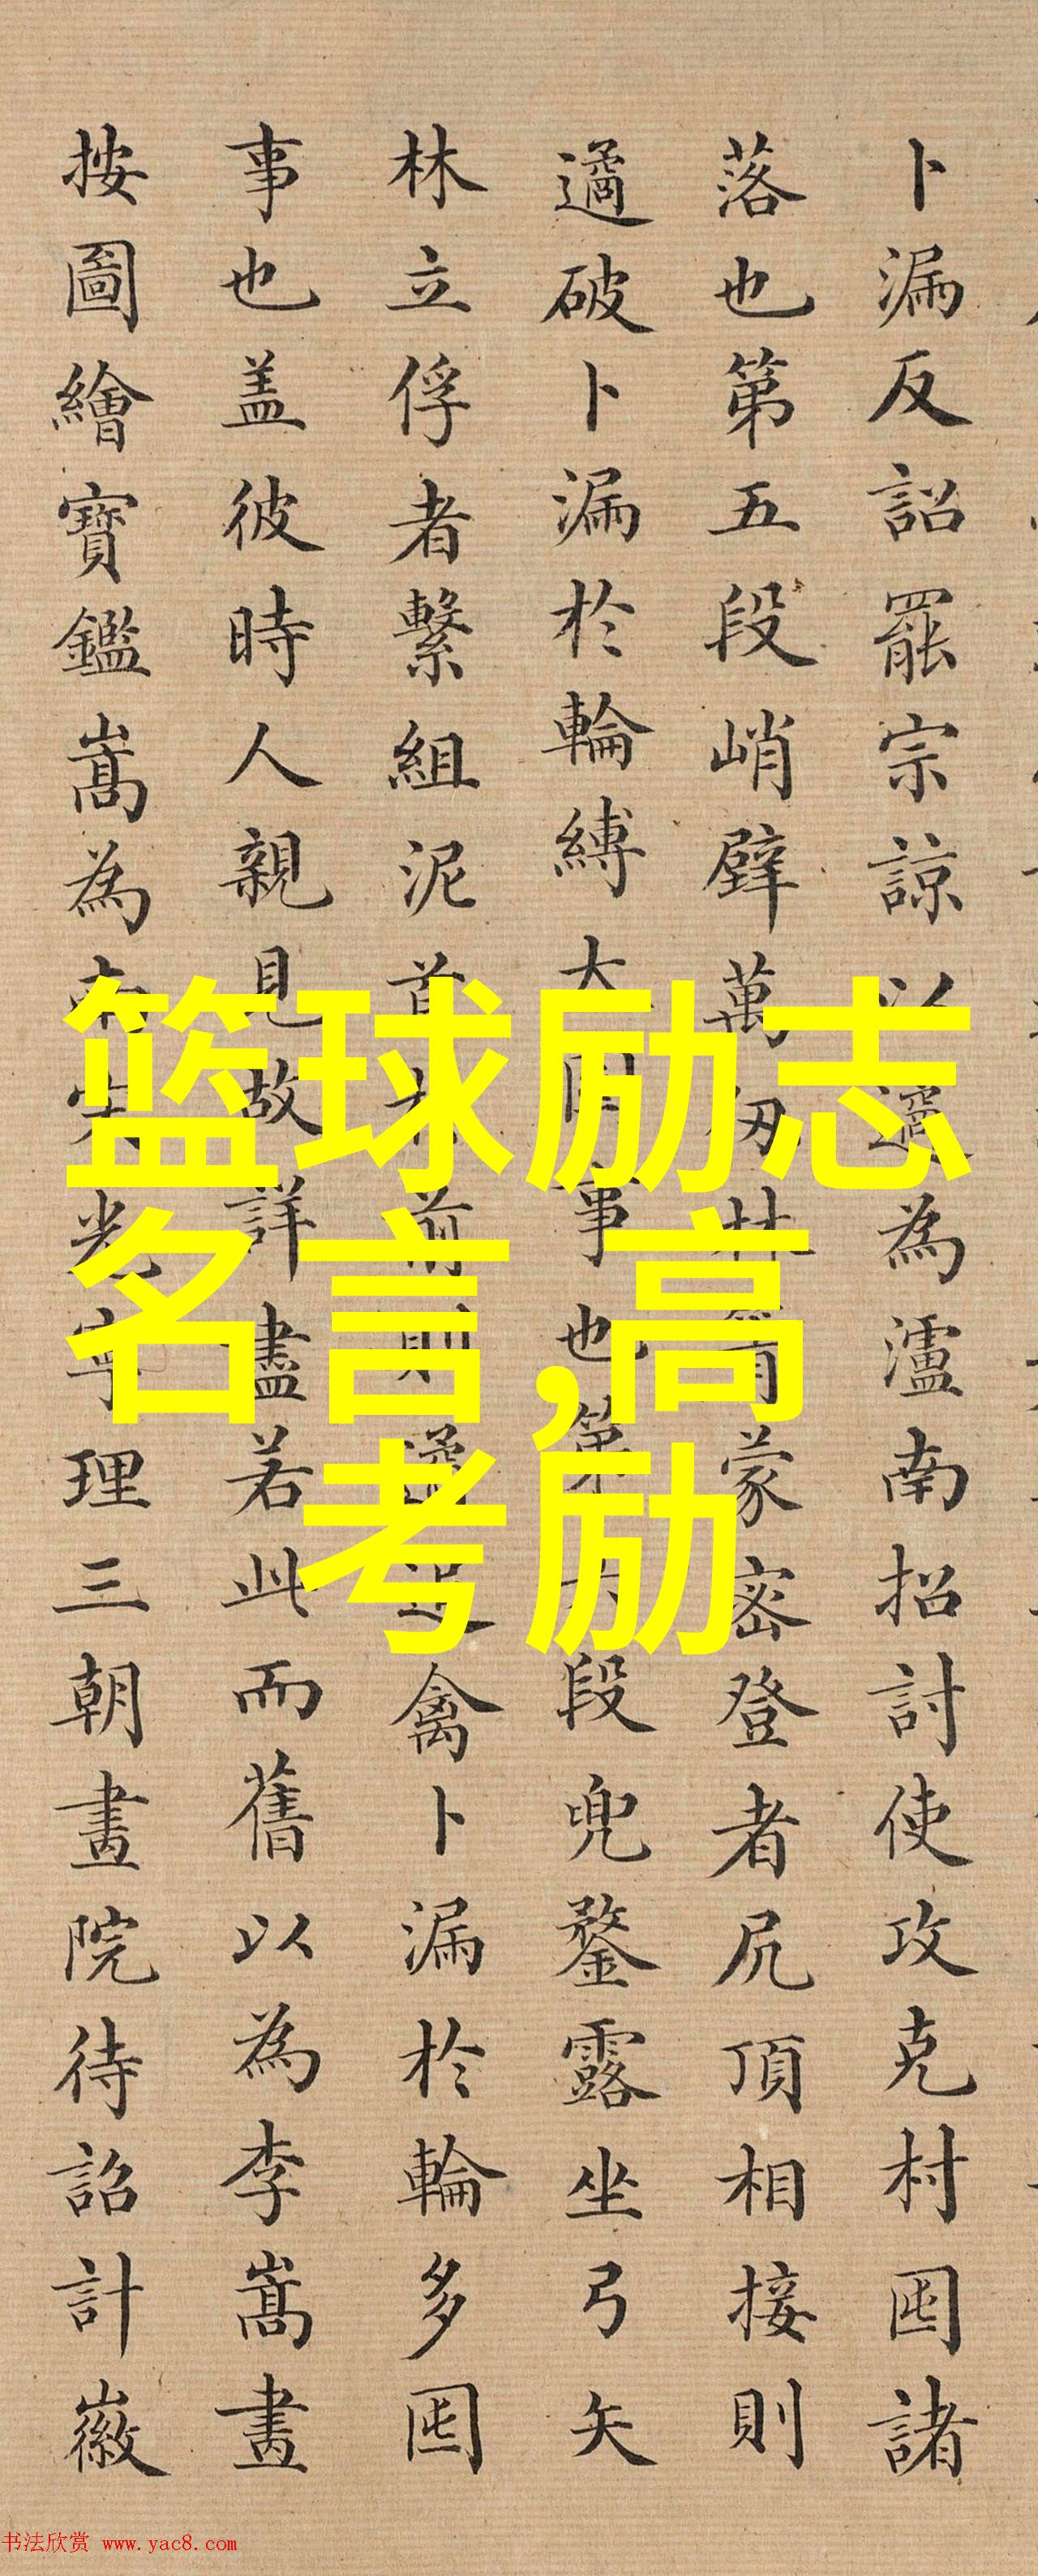 卜漏反詔罷宗諒以遹為瀘南招討使攻克村囤諸
落也第五段峭壁萬仞林箐蒙密登者尻頂相接則
遹破卜漏於輪縛大囤事也第六段兜鍪露坐弓矢
林立俘者繫組泥首於前則遹追禽卜漏於輪多囤
事也盖彼時人親見故詳盡若此而舊以為李嵩畫
按圖繪寶鑑嵩為南宋光寧理三朝畫院待詔計徽
篮球励志
名言,高
考励
书法欣赏 www.yac8.com